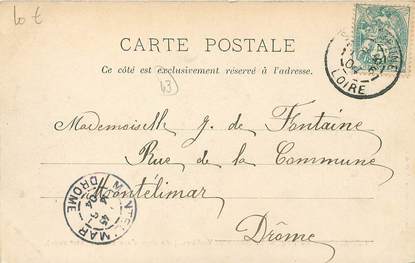 lot
CARTE POSTALE
Ce côté est exclusivement réservé à l'adresse.
43
LOIRE
Mademoiselle J. de Fontaine
Rue de la Commune
Montélimar
Drôme
MONTELIMAR
DROME